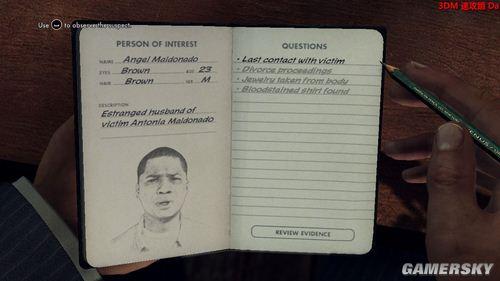 Use to observe the suspect.
3DM 速攻組 Da
PERSON OF INTEREST
NAME Angel Maldonado
EYES Brown AGE 23
HAIR Brown SEX M
DESCRIPTION
Estranged husband of
victim Antonia Maldonado
QUESTIONS
• Last contact with victim
• Divorce proceedings
• Jewelry taken from body
• Bloodstained shirt found
REVIEW EVIDENCE
GAMERSKY